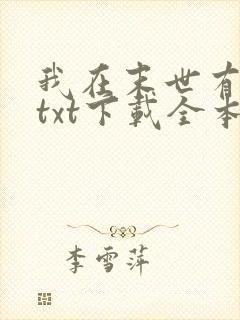 我在末世有
txt下载全本
李雪萍